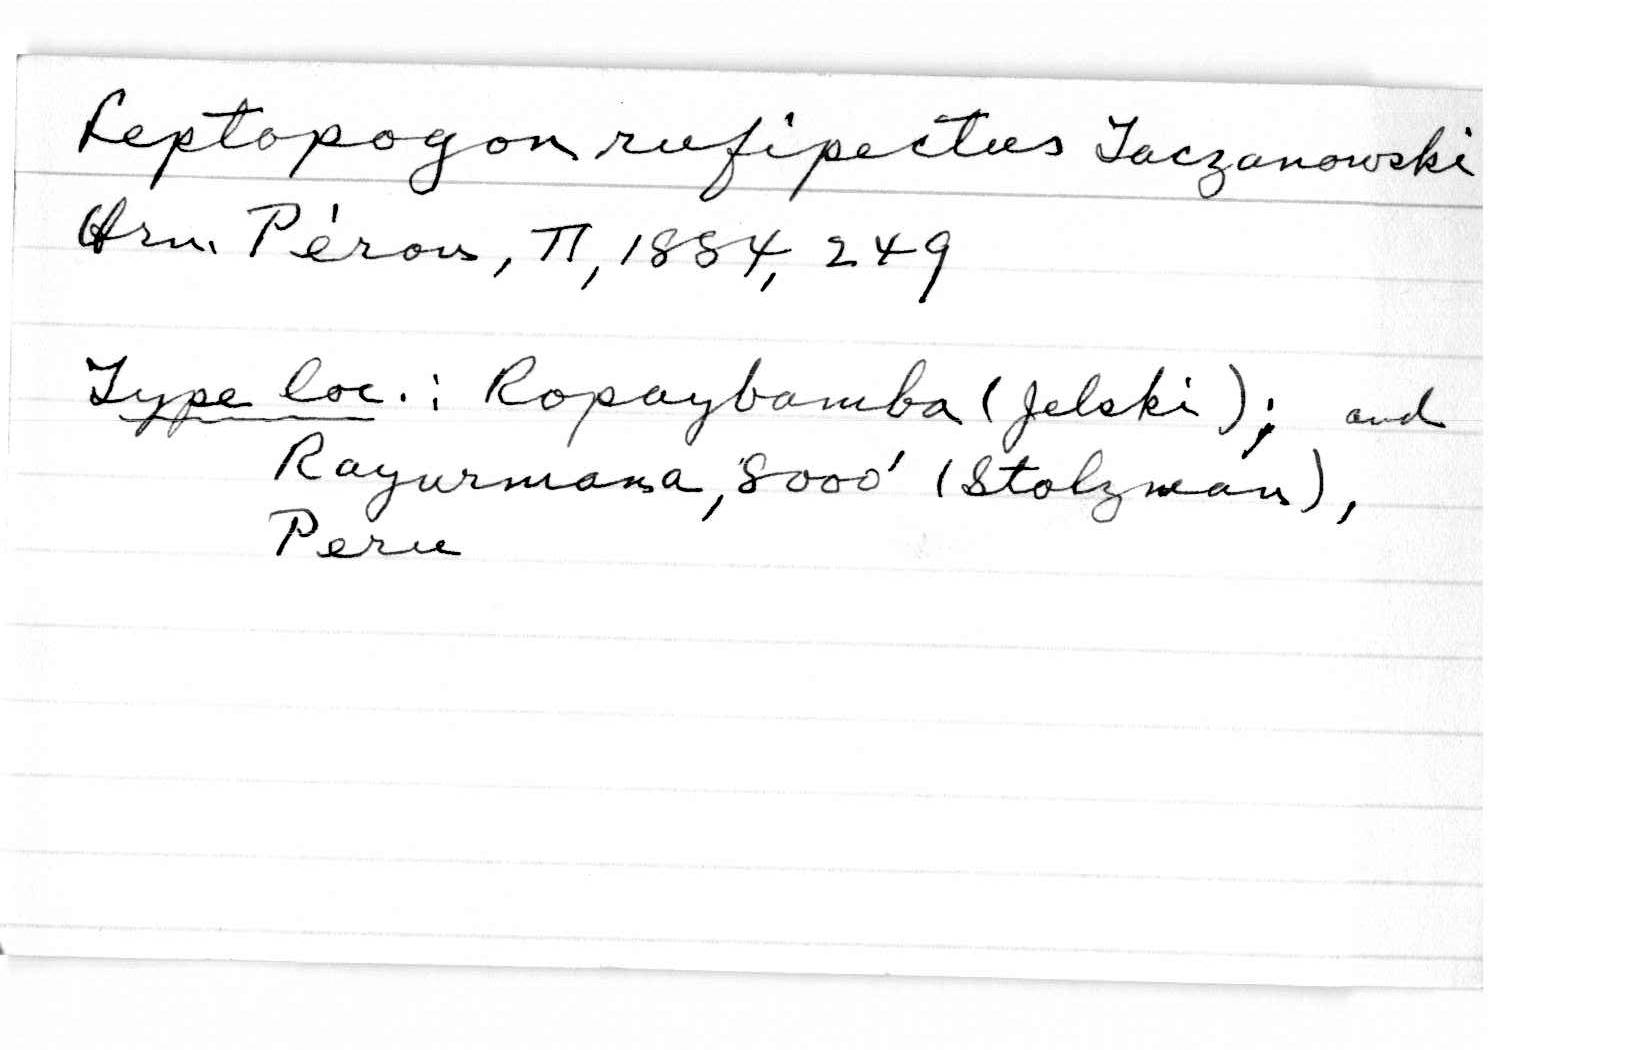 Leptopogon rufipectus Taczanowski
Orn. Pérou, II, 1884, 249
Type loc.: Ropaybamba (Jelski); and
Rayurmana, 8000' (Stolzman),
Peru